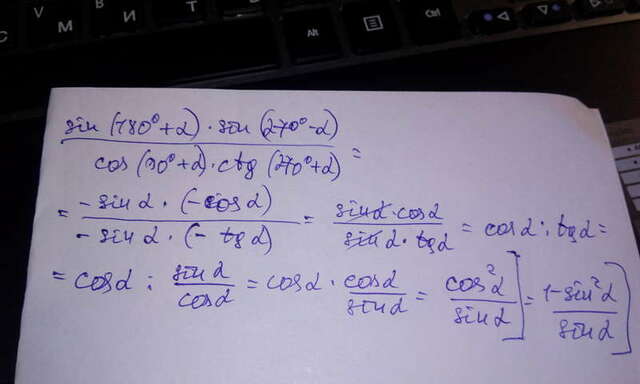 Alt
Ctrl
sin (180°+α) · sin (270°-α)
cos (90°+α) · ctg (270°+α) =
= - sin α · (- cos α) / - sin α · (- tg α) = sin α · cos α / sin α · tg α = cos α : tg α =
= cos α : sin α / cos α = cos α · cos α / sin α = cos² α / sin α ] = 1 - sin² α / sin α ]